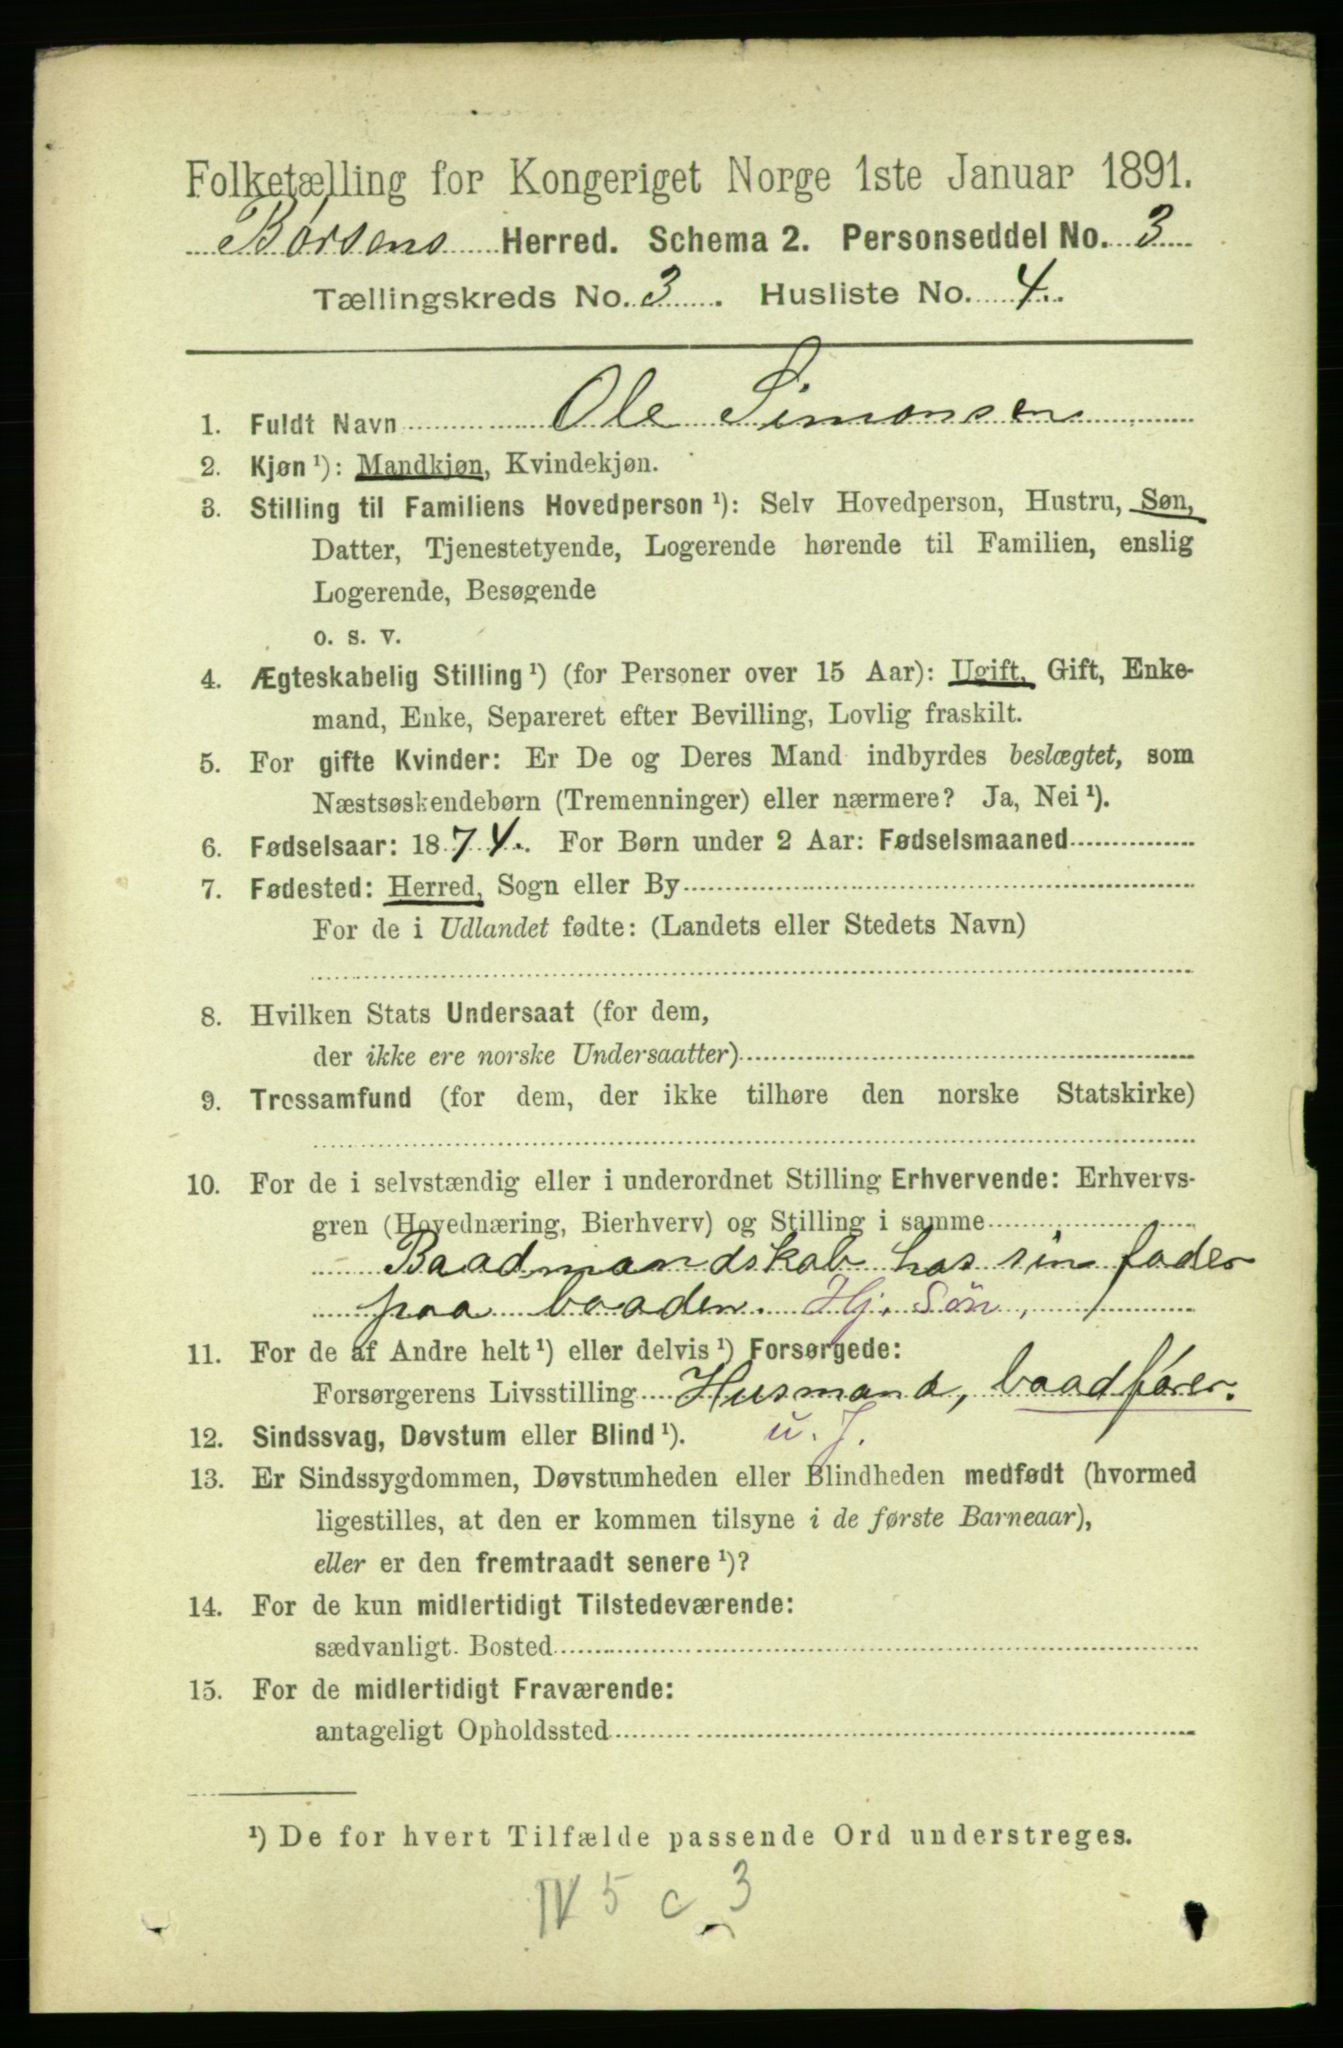 Folketælling for Kongeriget Norge 1ste Januar 1891.
Børsens Herred. Schema 2. Personseddel No. 3
Tællingskreds No. 3. Husliste No. 4.
1. Fuldt Navn Ole Simonsen
2. Kjøn ¹): Mandkjøn, Kvindekjøn.
3. Stilling til Familiens Hovedperson ¹): Selv Hovedperson, Hustru, Søn,
Datter, Tjenestetyende, Logerende hørende til Familien, enslig
Logerende, Besøgende
o. s. v.
4. Ægteskabelig Stilling ¹) (for Personer over 15 Aar): Ugift, Gift, Enke-
mand, Enke, Separeret efter Bevilling, Lovlig fraskilt.
5. For gifte Kvinder: Er De og Deres Mand indbyrdes beslægtet, som
Næstsøskendebørn (Tremenninger) eller nærmere? Ja, Nei ¹).
6. Fødselsaar: 1874. For Børn under 2 Aar: Fødselsmaaned
7. Fødested: Herred, Sogn eller By
For de i Udlandet fødte: (Landets eller Stedets Navn)
8. Hvilken Stats Undersaat (for dem,
der ikke ere norske Undersaatter)
9. Trossamfund (for dem, der ikke tilhøre den norske Statskirke)
10. For de i selvstændig eller i underordnet Stilling Erhvervende: Erhvervs-
gren (Hovednæring, Bierhverv) og Stilling i samme
Baadmandskab hos sin fader
paa baaden. Hj. Søn,
11. For de af Andre helt ¹) eller delvis ¹) Forsørgede:
Forsørgerens Livsstilling Husmand, baadfører.
12. Sindssvag, Døvstum eller Blind ¹). u. J.
13. Er Sindssygdommen, Døvstumheden eller Blindheden medfødt (hvormed
ligestilles, at den er kommen tilsyne i de første Barneaar),
eller er den fremtraadt senere ¹)?
14. For de kun midlertidigt Tilstedeværende:
sædvanligt Bosted
15. For de midlertidigt Fraværende:
antageligt Opholdssted
¹) De for hvert Tilfælde passende Ord understreges.
IV 5 c 3